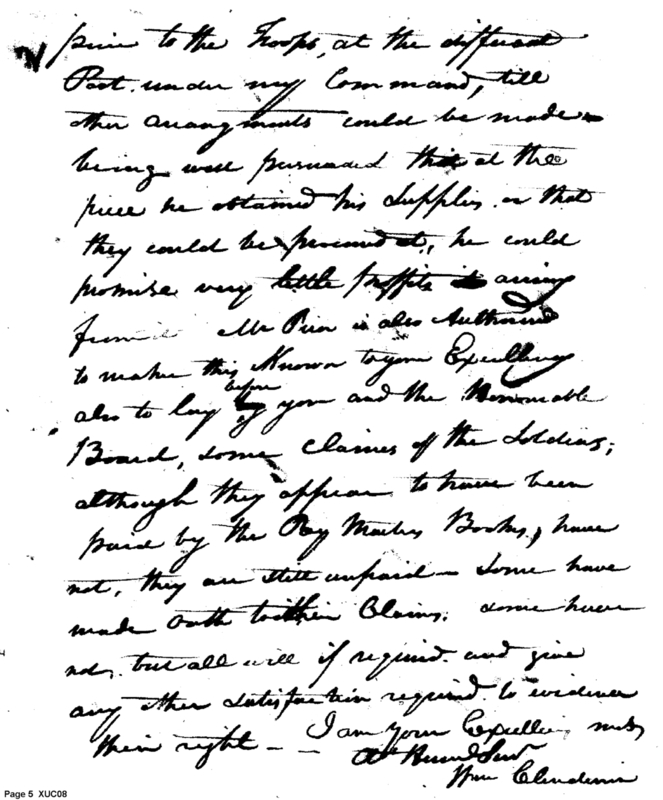 to the Troops, at the different
Post. under my Command, till
other arangments could be made
being well persuaded that at the
price he obtained his Supplies. or that
they could be procured at, he could
promise very little proffets arising
from Mr Prior is also Authorised
to make this Known to your Excellency
also to lay before you and the Honourable
Board, some Claimes of the Soldiers;
although they appear to have been
paid by the Pay Masters Books, have
not, they are still unpaid - Some have
made Oath to their Claims. some have
not. but all will if required. and give
any other Satisfaction required to evidence
their right - - I am your Excellency most
Wm Clendinin
Page 5 XUC08